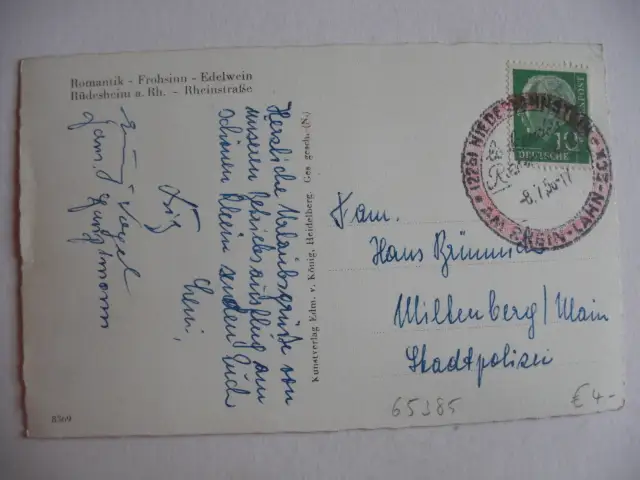 Romantik - Frohsinn - Edelwein
Rüdesheim a. Rh. - Rheinstraße
Herzliche Urlaubsgrüße von
unserem Betriebsausflug am
schönen Rhein senden Euch
Fritz
Leni,
Vogel
Fam.
Kunstverlag Edm. v. König, Heidelberg. Ges. gesch. (N)
DEUTSCHE
10
AM RHEIN-LAHN-ECK
8.7.56-17
Fam.
Hans
Miltenberg/Main
Stadtpolizei
65385
€ 4-